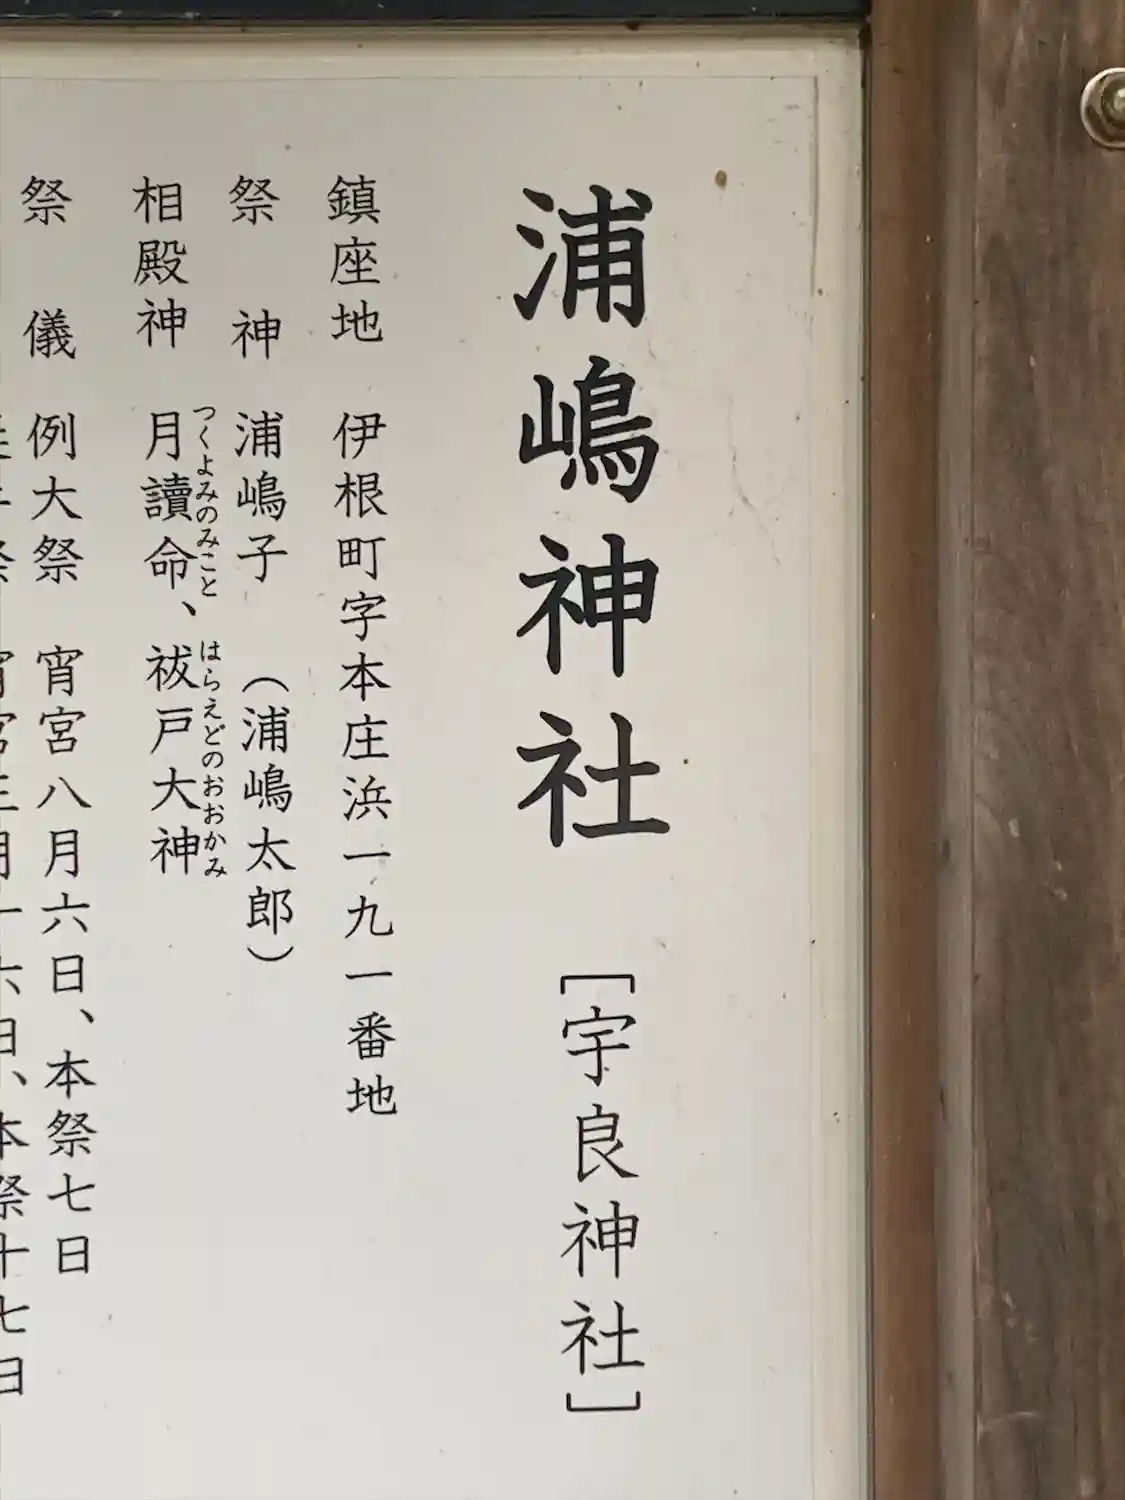 浦嶋神社 [宇良神社]
鎮座地 伊根町字本庄浜一九一番地
祭神 浦嶋子 (浦嶋太郎)
つくよみのみこと はらえどのおおかみ
相殿神 月讀命、祓戸大神
祭儀 例大祭 宵宮八月六日、本祭七日
宵宮三月十六日、本祭十七日